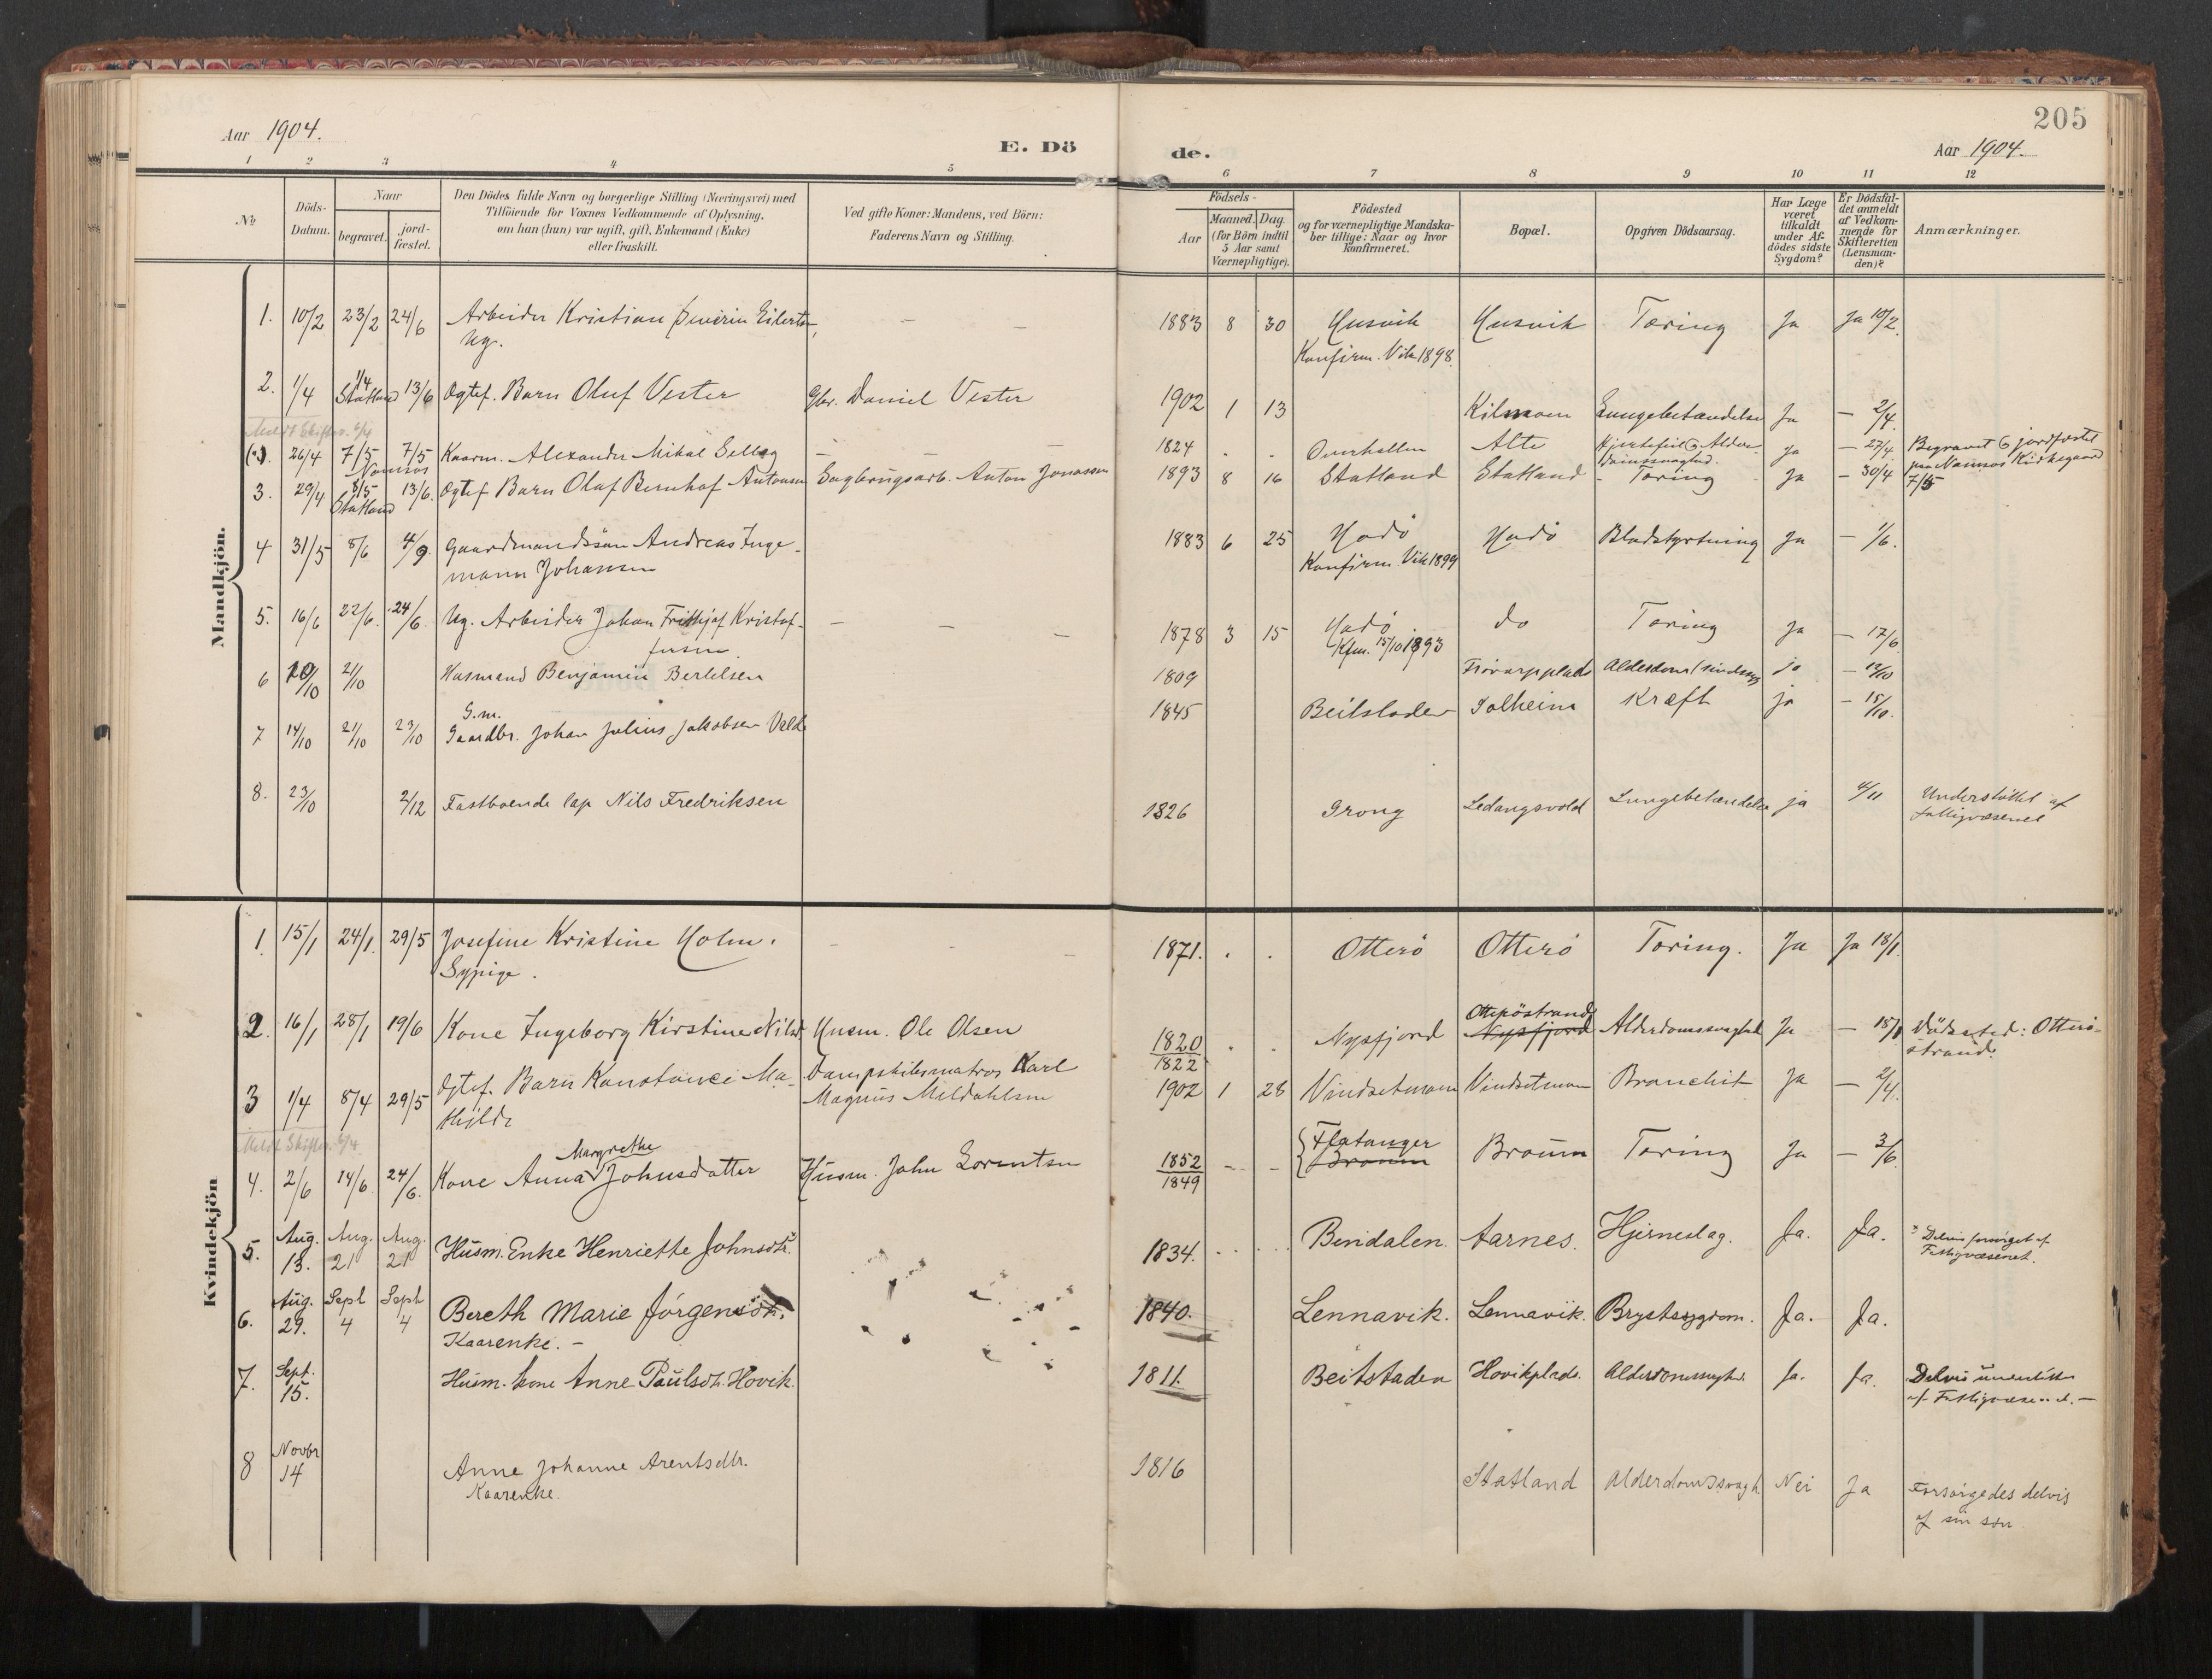 205
Aar 1904.
E. Dö
de.
Aar 1904.
1 2 3 4 5 6 7 8 9 10 11 12
№
Döds-Datum.
Naar
begravet.
jord-fæstet.
Den Dödes fulde Navn og borgerlige Stilling (Næringsvei) med
Tilföiende for Voxnes Vedkommende af Oplysning,
om han (hun) var ugift, gift, Enkemand (Enke)
eller fraskilt.
Ved gifte Koner: Mandens, ved Börn:
Faderens Navn og Stilling.
Födsels-
Aar
Maaned. Dag.
(for Börn indtil
5 Aar samt
Værnepligtige).
Födested
og for værnepligtige Mandska-
ber tillige: Naar og hvor
konfirmeret.
Bopæl.
Opgiven Dödsaarsag.
Har Læge
været
tilkaldt
under Af-
dödes sidste
Sygdom?
Er Dödsfal-
det anmeldt
af Vedkom-
mende for
Skifteretten
(Lensman-
den)?
Anmærkninger.
Mandkjön.
1. 10/2 23/2 24/6 Arbeider Kristian Severin Eilertsen, — — 1883 8 30 Husvik Husvik Tæring Ja Ja 10/2.
Ug. Konfirm. Vik 1898.
2. 1/4 1/4 Statland 13/6 Ogtef. Barn Oluf Vester Gbr. Daniel Vester 1902 1 13 Kilmoen Lungebetændelse Ja — 2/4.
Meldt Skifter. 4/4
26/4 7/5 Namsos 7/5 Kaarm. Alexander Mikal Sellæg — — 1824 . . Overhallen Alte Hjertefeil & Alder-domssvaghed. Ja — 27/4 Begravet & jordfæstet
paa Namsos Kirkegaard
7/5
3. 29/4 8/5 Statland 13/6. Ogtef Barn Olaf Bernhof Antonsen Sagbrugsarb. Anton Jonassen 1893 8 16 Statland Statland Tæring Ja — 30/4
4 31/5 8/6 4/9 Gaardmandssøn Andreas Inge- 1883 6 25 Hadö Hadö Blodstyrtning Ja — 1/6.
mann Johansen Konfirm. Vik 1899
5. 16/6 22/6. 24/6. Ug. Arbeider Johan Frithjof Kristof- — — — 1878 3 15 Hadö do Tæring Ja — 17/6
fersen. Kfm. 15/10 1893
6 10/10 21/10 Husmand Benjamin Bertelsen 1809 Alderdom ja — 12/10
7 14/10 21/10 23/10 G.m.
Gaardbr. Johan Julius Jakobsen 1845 Beitstaden Solheim Kræft ja — 15/10.
8. 23/10 2/12 Fastboende lap Nils Fredriksen 1826 Grong Ledangsvold Lungebetændelse ja 4/11 Understöttet af
fattigvæsenet
Kvindekjön
1. 15/1 24/1. 29/5 Josefine Kristine Holm. — — 1871. . . Otterö Otterö Tæring. Ja Ja 18/1.
Sypige.
2. 16/1 28/1 19/6 Kone Ingeborg Kirstine Nilsd. Husm. Ole Olsen 1820 . . Nysfjord Otteröstrand
Nysfjord Alderdomssvaghed Ja — 18/1 Dödssted: Otterö-
1822 strand.
3 1/4 8/4 29/5 Ogtef. Barn Konstance Ma- Dampskibsmatros Karl 1902 1 28 Vindsetmoen Vindsetmoen Bronchit Ja — 2/4.
thilde Magnus Meldahlsen
Meldt Skifter. 4/4
4. 2/6 14/6 24/6. Kone Anna Margrethe Johnsdatter Husm. John Lorentsen 1852 — — Flatanger Braum Tæring Ja — 3/6.
1849 Braum
5. Aug. 13. Aug. 21 Aug. 21 Husm. Enke Henriette Johnsdtr. 1834. Bindalen. Aarnes. Hjerneslag. Ja. Ja. Delvis forsørget af
Fattigvæsenet.
6. Aug. 29. Sept 4 Sept 4 Bereth Marie Jörgensdtr. 1840. Lennavik. Lennavik. Brystsygdom. Ja. Ja.
Kaarenke. —
7. Sept. 15. Husm. kone Anne Paulsdt. Hovik. 1811. Beitstaden Hovikplads. Alderdomssvaghd. Ja. Ja. Delvis understöttet
af Fattigvæsenet. —
8 Novbr 14 Anne Johanne Arentsdtr. 1816 Statland Alderdomssvagh Nei Ja Forsörgedes delvis
Kaarenke. af sin sön